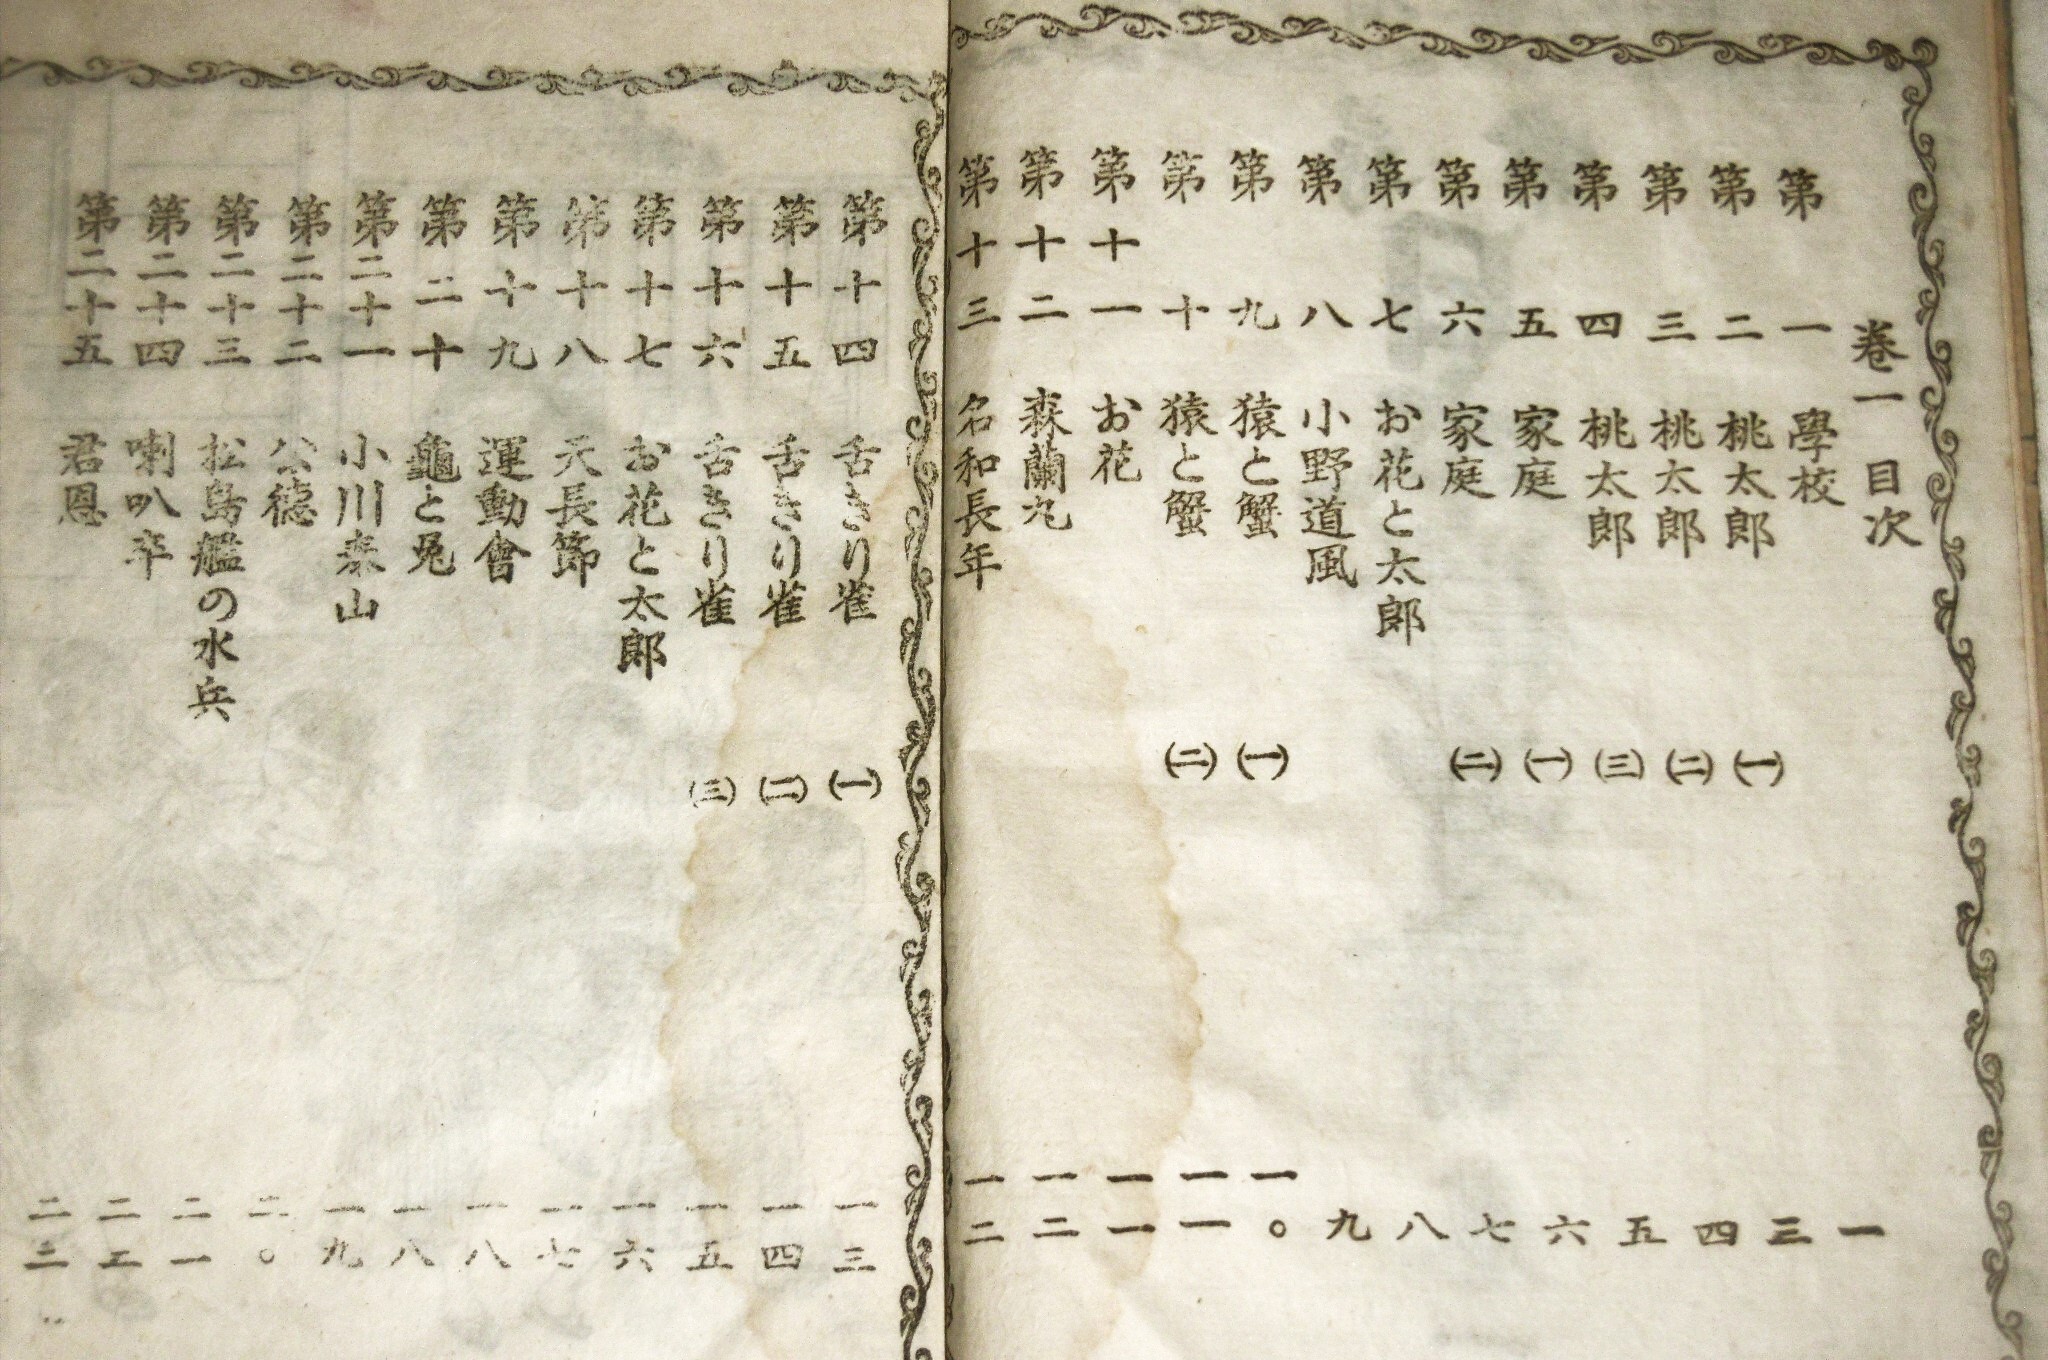 巻一 目次
第一 學校 一
第二 桃太郎 ㈠ 三
第三 桃太郎 ㈡ 四
第四 桃太郎 ㈢ 五
第五 家庭 ㈠ 六
第六 家庭 ㈡ 七
第七 お花と太郎 八
第八 小野道風 九
第九 猿と蟹 ㈠ 一〇
第十 猿と蟹 ㈡ 一一
第十一 お花 一一
第十二 森蘭丸 一二
第十三 名和長年 一二
第十四 舌きり雀 ㈠ 一三
第十五 舌きり雀 ㈡ 一四
第十六 舌きり雀 ㈢ 一五
第十七 お花と太郎 一六
第十八 天長節 一七
第十九 運動會 一八
第二十 龜と兎 一八
第二十一 小川泰山 一九
第二十二 公德 二〇
第二十三 松島艦の水兵 二一
第二十四 喇叭卒
第二十五 君恩